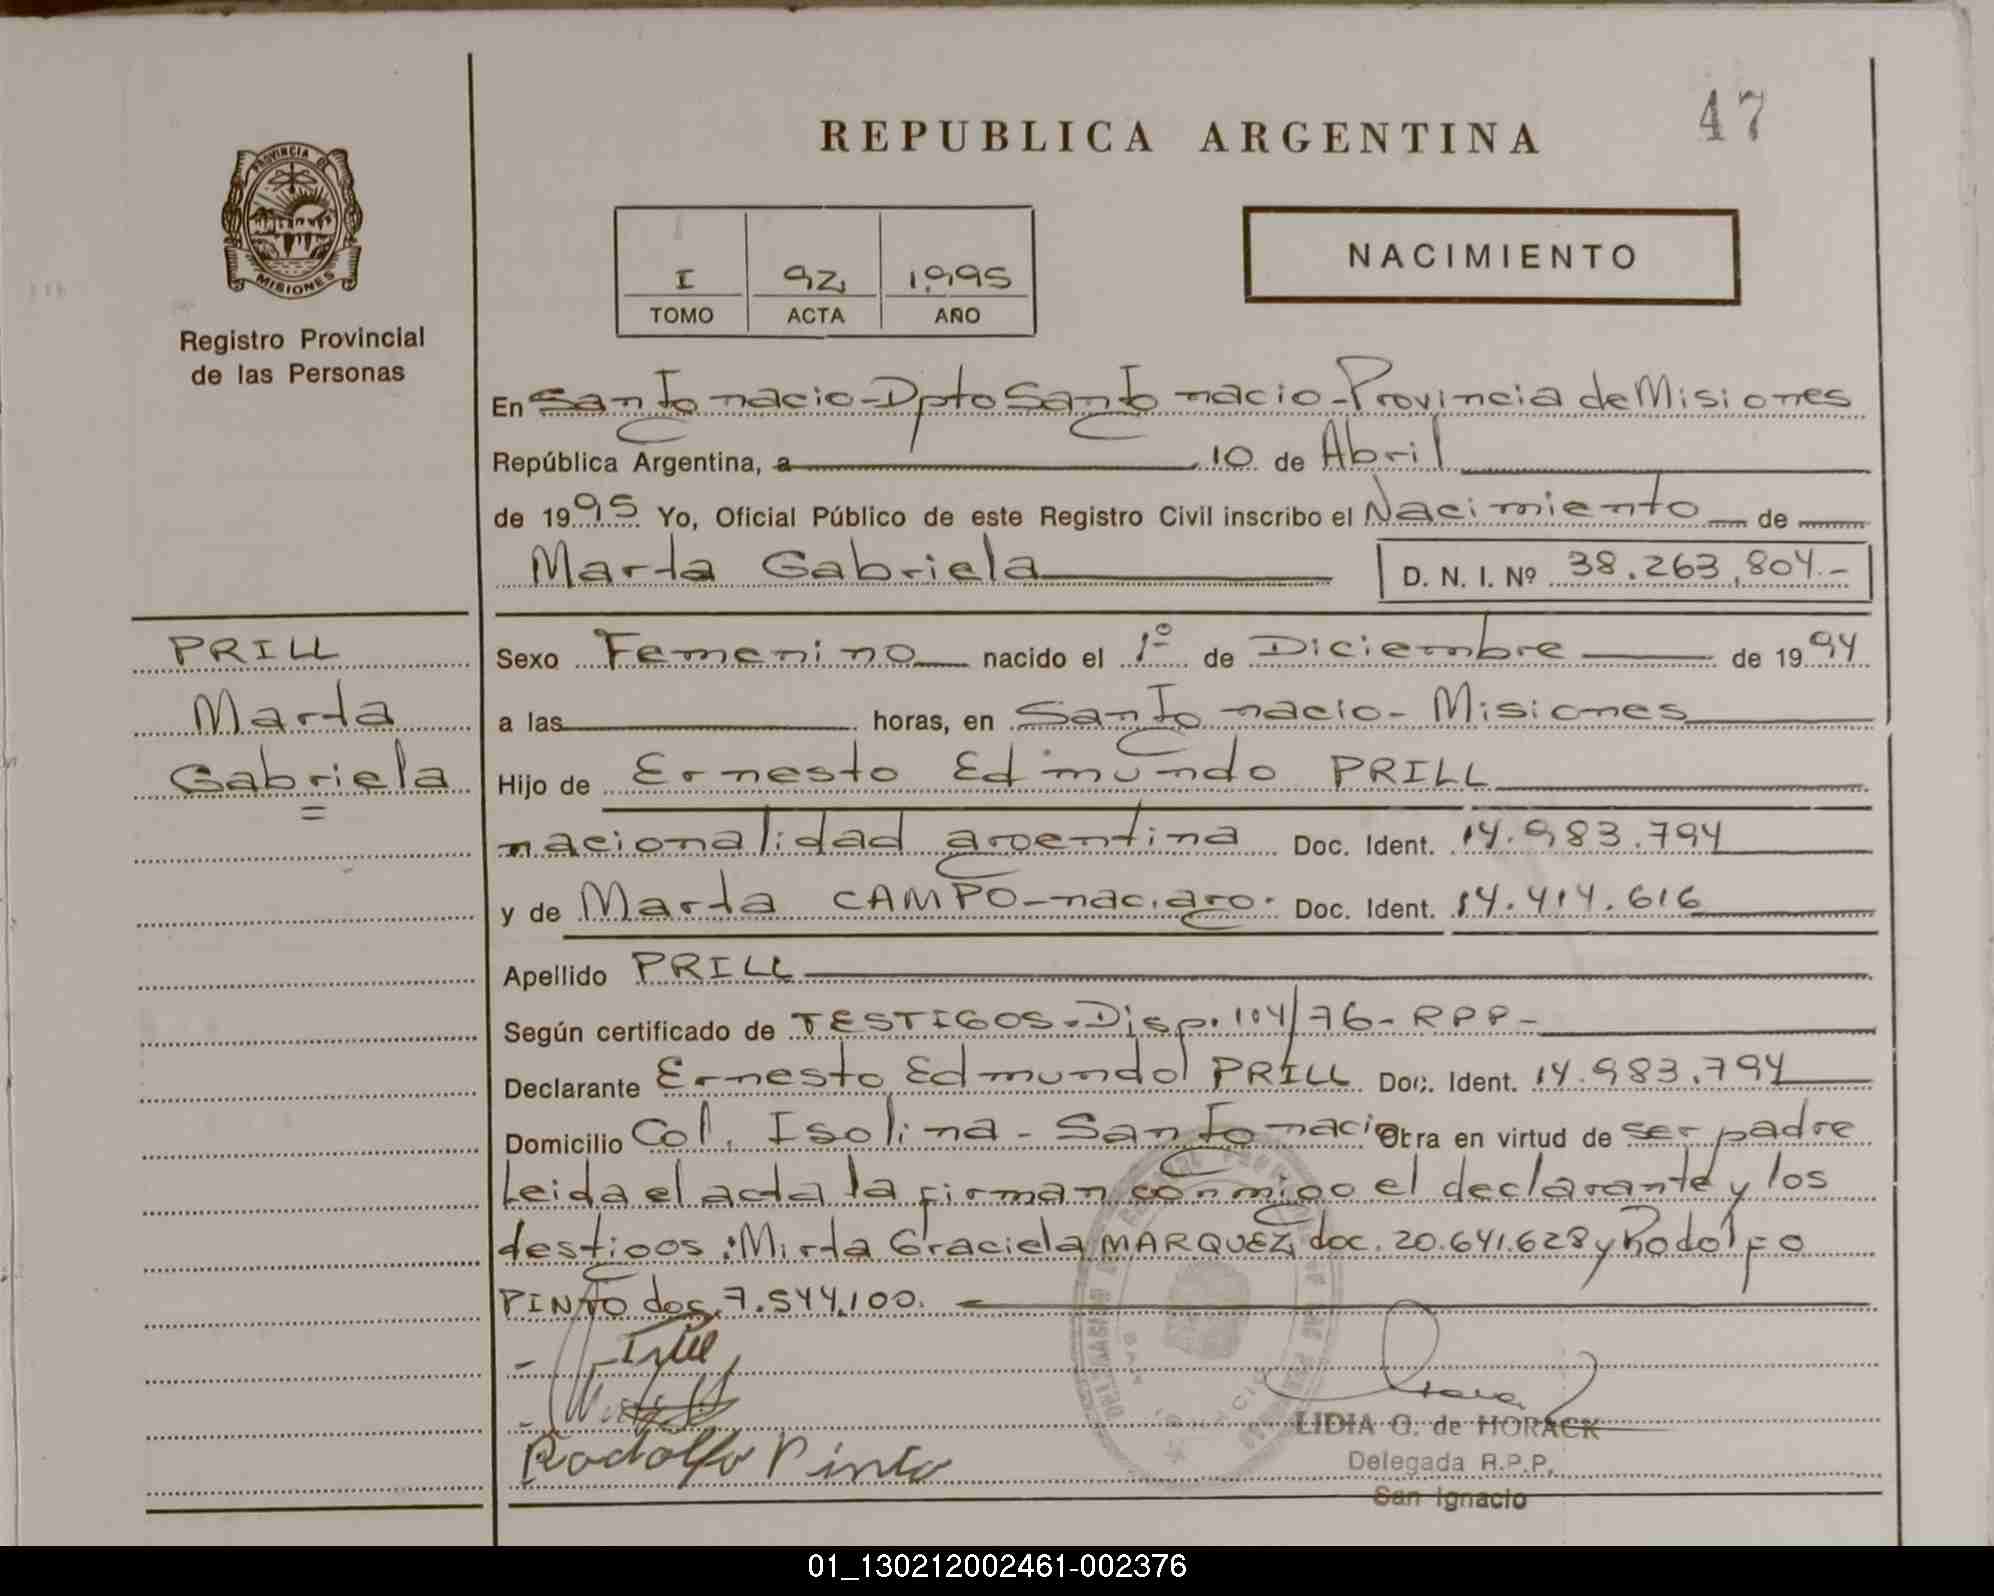 47
REPUBLICA ARGENTINA
PROVINCIA DE
MISIONES
NACIMIENTO
I 92 1.995
TOMO ACTA AÑO
Registro Provincial
de las Personas
En San Ignacio-Dpto San Ignacio-Provincia de Misiones
República Argentina, a 10 de Abril
de 1995 Yo, Oficial Público de este Registro Civil inscribo el Nacimiento de
Marta Gabriela D. N. I. Nº 38.263.804.-
PRILL
Marta
Gabriela
=
Sexo Femenino nacido el 1º de Diciembre de 1994
a las horas, en San Ignacio- Misiones
Hijo de Ernesto Edmundo PRILL
nacionalidad argentina Doc. Ident. 14.983.794
y de Marta CAMPO-nac.arg. Doc. Ident. 14.414.616
Apellido PRILL
Según certificado de TESTIGOS-Disp.104/76-RPP-
Declarante Ernesto Edmundo PRILL Doc. Ident. 14.983.794
Domicilio Col. Isolina - San Ignacio Obra en virtud de ser padre
Leida el acta la firman conmigo el declarante y los
testigos: Mirta Graciela MARQUEZ, doc. 20.641.628 y Rodolfo
PINTO doc. 7.544.100.
Rodolfo Pinto
LIDIA O. de HORACK
Delegada R.P.P.
San Ignacio
01_130212002461-002376